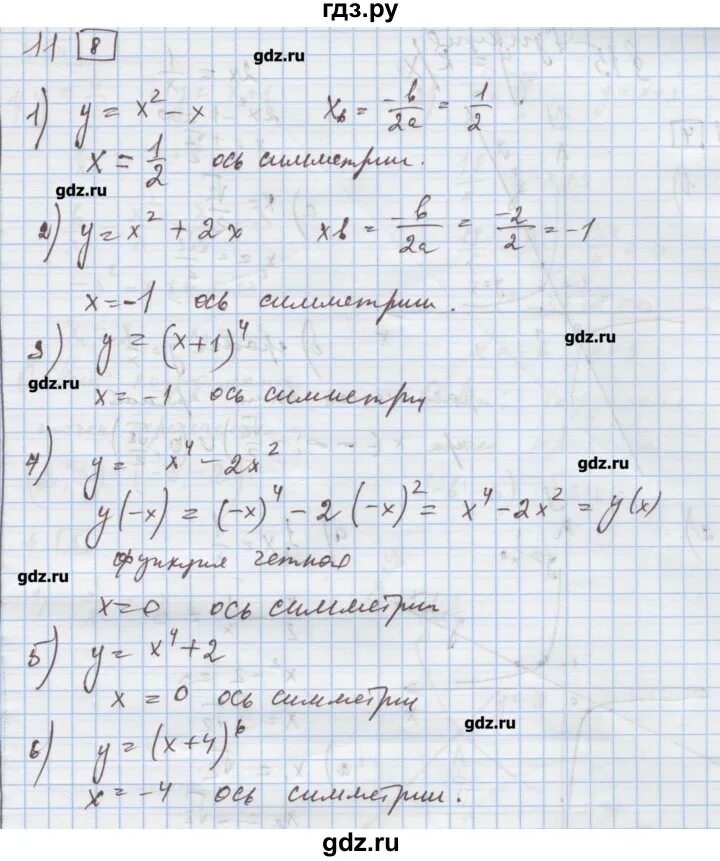 гдз.ру
11 8
gdz.ru
1) y = x² - x   xв = -b/2a = 1/2.
x = 1/2 ось симметрии.
gdz.ru
2) y = x² + 2x   xв = -b/2a = -2/2 = -1
x = -1 ось симметрии.
gdz.ru
3) y = (x+1)⁴
gdz.ru
x = -1 ось симметри
gdz.ru
4) y = x⁴ - 2x²
y(-x) = (-x)⁴ - 2(-x)² = x⁴ - 2x² = y(x)
функция четная
gdz.ru
x = 0 ось симметрии
5) y = x⁴ + 2
x = 0 ось симметрии
gdz.ru
6) y = (x+4)⁶
x = -4 ось симметрии.
gdz.ru